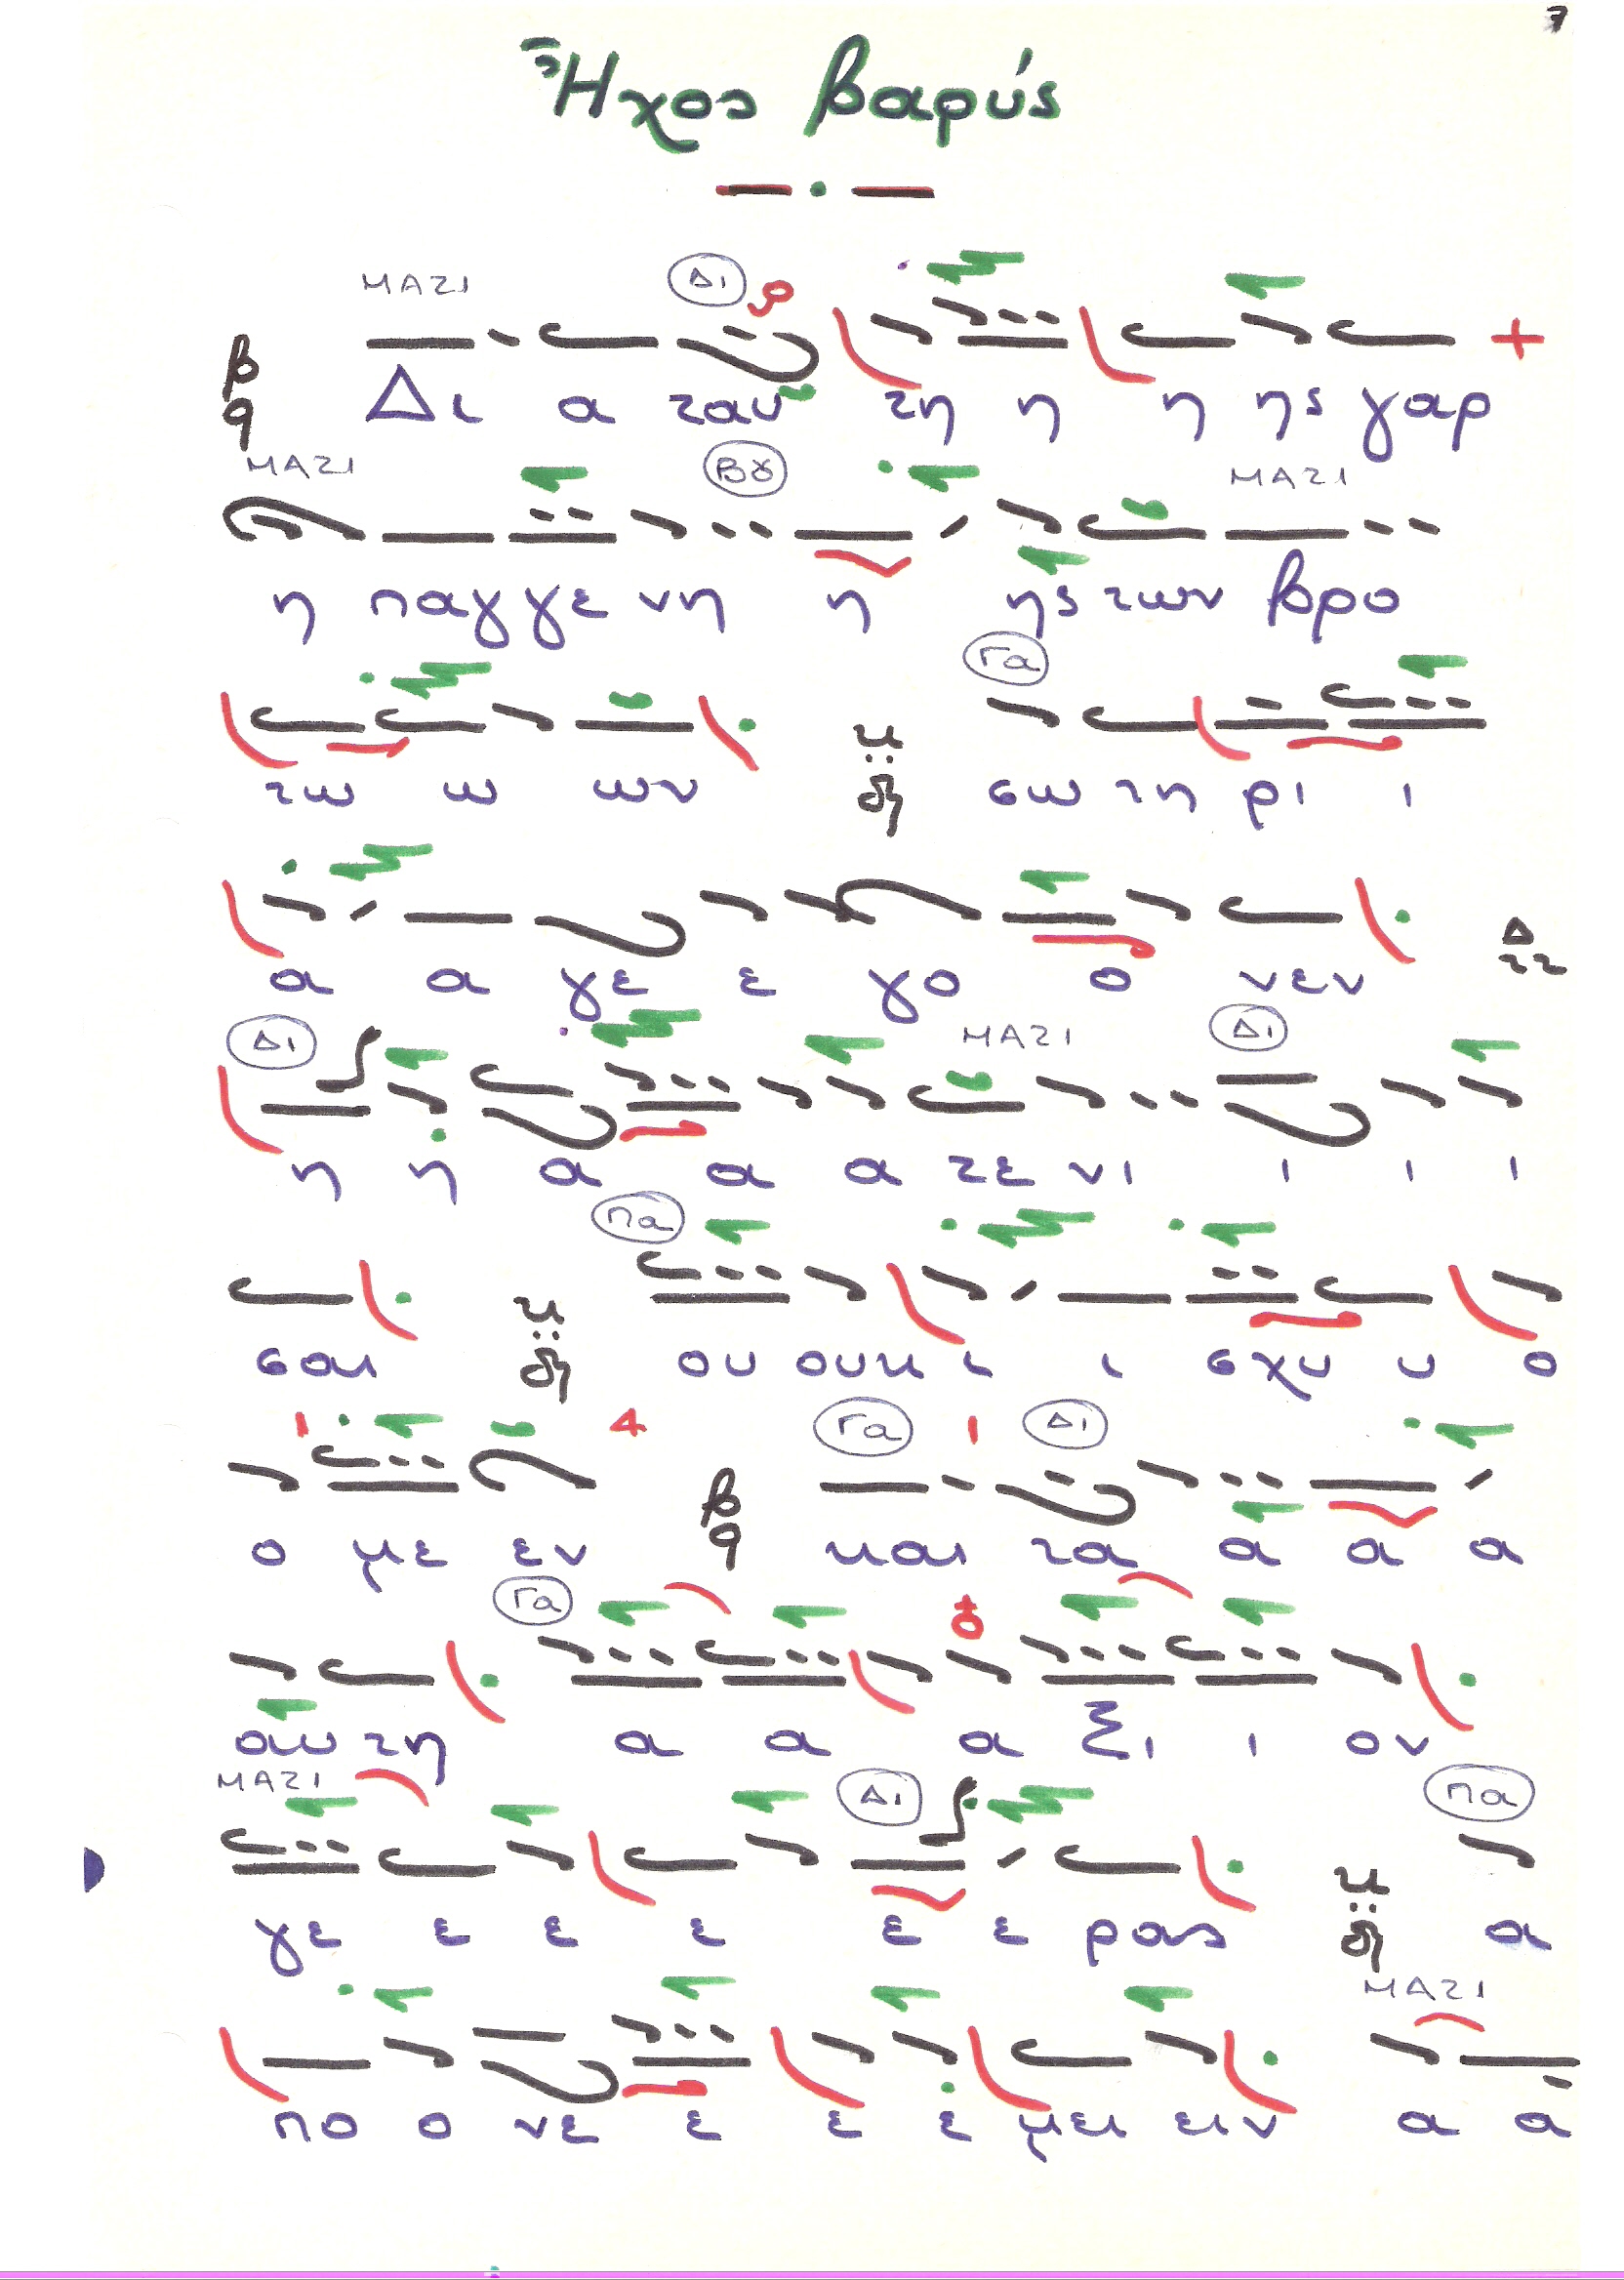 7
Ἦχος βαρύς
ΜΑΖΙ Δι
Δι α ταυ τη η η ης γαρ
ΜΑΖΙ Βου ΜΑΖΙ
η παγ γε νη η ης των βρο
Γα
τω ω ων σω τη ρι ι
α α γε ε γο ο νεν
Δι ΜΑΖΙ Δι
η η α α α τε νι ι ι ι
Πα
σαι ου ουκ ι ι σχυ υ ο
1 4 Γα 1 Δι
ο με εν και τα α α α
Γα
αυ τη α α α ξι ι ον
ΜΑΖΙ Δι Πα
γε ε ε ε ε ε ρας α
ΜΑΖΙ
πο ο νε ε ε ε μει ειν α α